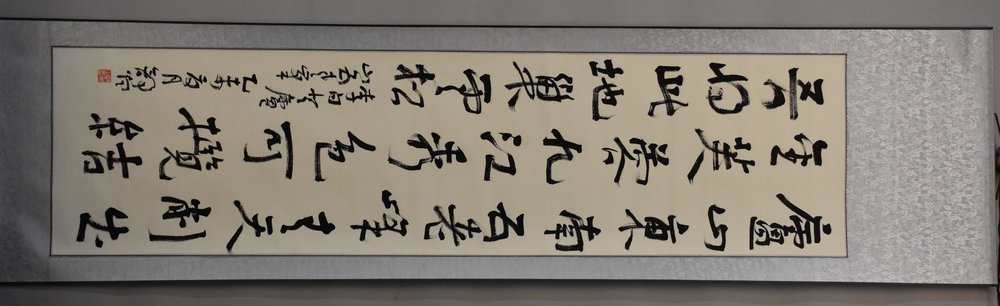 廬山東南五老峰青天削出
金芙蓉九江秀色可攬結
吾將此地巢雲松
李白登廬
山五老峰
乙 月